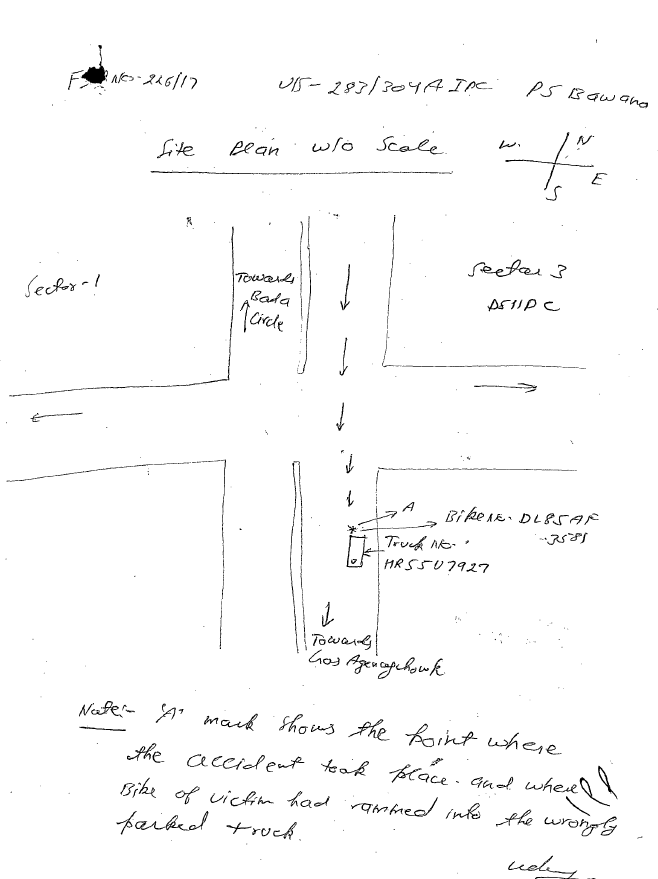 No-226/17 U/S-283/304A IPC PS Bawana
Site Plan w/o Scale
W. N
E
S
Sector-1
Towards
Bada
Circle
Sector 3
DSIIDC
A
Bike No. DL8SAF
-3581
Truck No.
HR55U7927
Towards
Gas Agency chowk
Note:- 'A' mark shows the point where
the accident took place. and where
Bike of victim had rammed into the wrongly
parked truck.